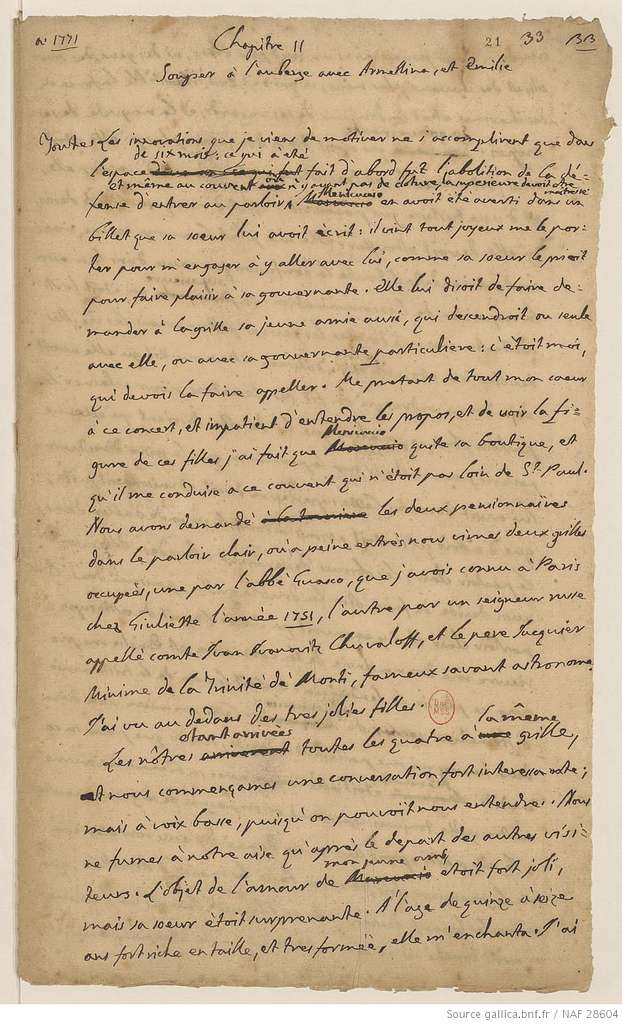 an 1771 Chapitre 11 21 33 133
Souper à l'auberge avec Armelline, et Emilie
Toutes les innovations que je viens de motiver ne s'accomplirent que dans
de six mois: ce qui a été
l'espace fait d'abord fut l'abolition de la dé-
et même au couvent où n'y ayant pas de cloture, la superieure devoit être
maitresse
fense d'entrer au parloir, Menicuccio en avoit été averti dans un
billet que sa soeur lui avoit écrit: il vint tout joyeux me le por-
ter pour m'engager à y aller avec lui, comme sa soeur le prioit
pour faire plaisir à sa gouvernante. Elle lui disoit de faire de-
mander à la grille sa jeune amie aussi, qui descendroit ou seule
avec elle, ou avec sa gouvernante particuliere: c'étoit moi,
qui devois la faire appeller. Me pretant de tout mon coeur
à ce concert, et impatient d'entendre les propos, et de voir la fi-
Menicuccio
gure de ces filles j'ai fait que quite sa boutique, et
qu'il me conduise a ce couvent qui n'étoit pas loin de St. Paul.
Nous avons demandé à la tourriere les deux pensionnaires
dans le parloir clair, où à peine entrés nous vimes deux grilles
occupées, une par l'abbé Guasco, que j'avois connu à Paris
chez Giuliette l'année 1751, l'autre par un seigneur russe
appellé comte Ivan Ivanovitz Chuvaloff, et le pere Jacquier
Minime de la Trinité dé Monti, fameux savant astronome.
J'ai vu au dedans des tres jolies filles.
etant arrivées la même
Les nôtres arriverent toutes les quatre à une grille,
et nous commençames une conversation fort interessante;
mais à voix basse, puisqu'on pouvoit nous entendre. Nous
ne fumes à notre aise qu'après le depart des autres visi-
mon jeune ami,
teurs. L'objet de l'amour de etoit fort joli,
mais sa soeur étoit surprenante. A l'age de quinze à seize
ans fort riche en taille, et tres formée, elle m'enchanta. J'ai
Source gallica.bnf.fr / NAF 28604